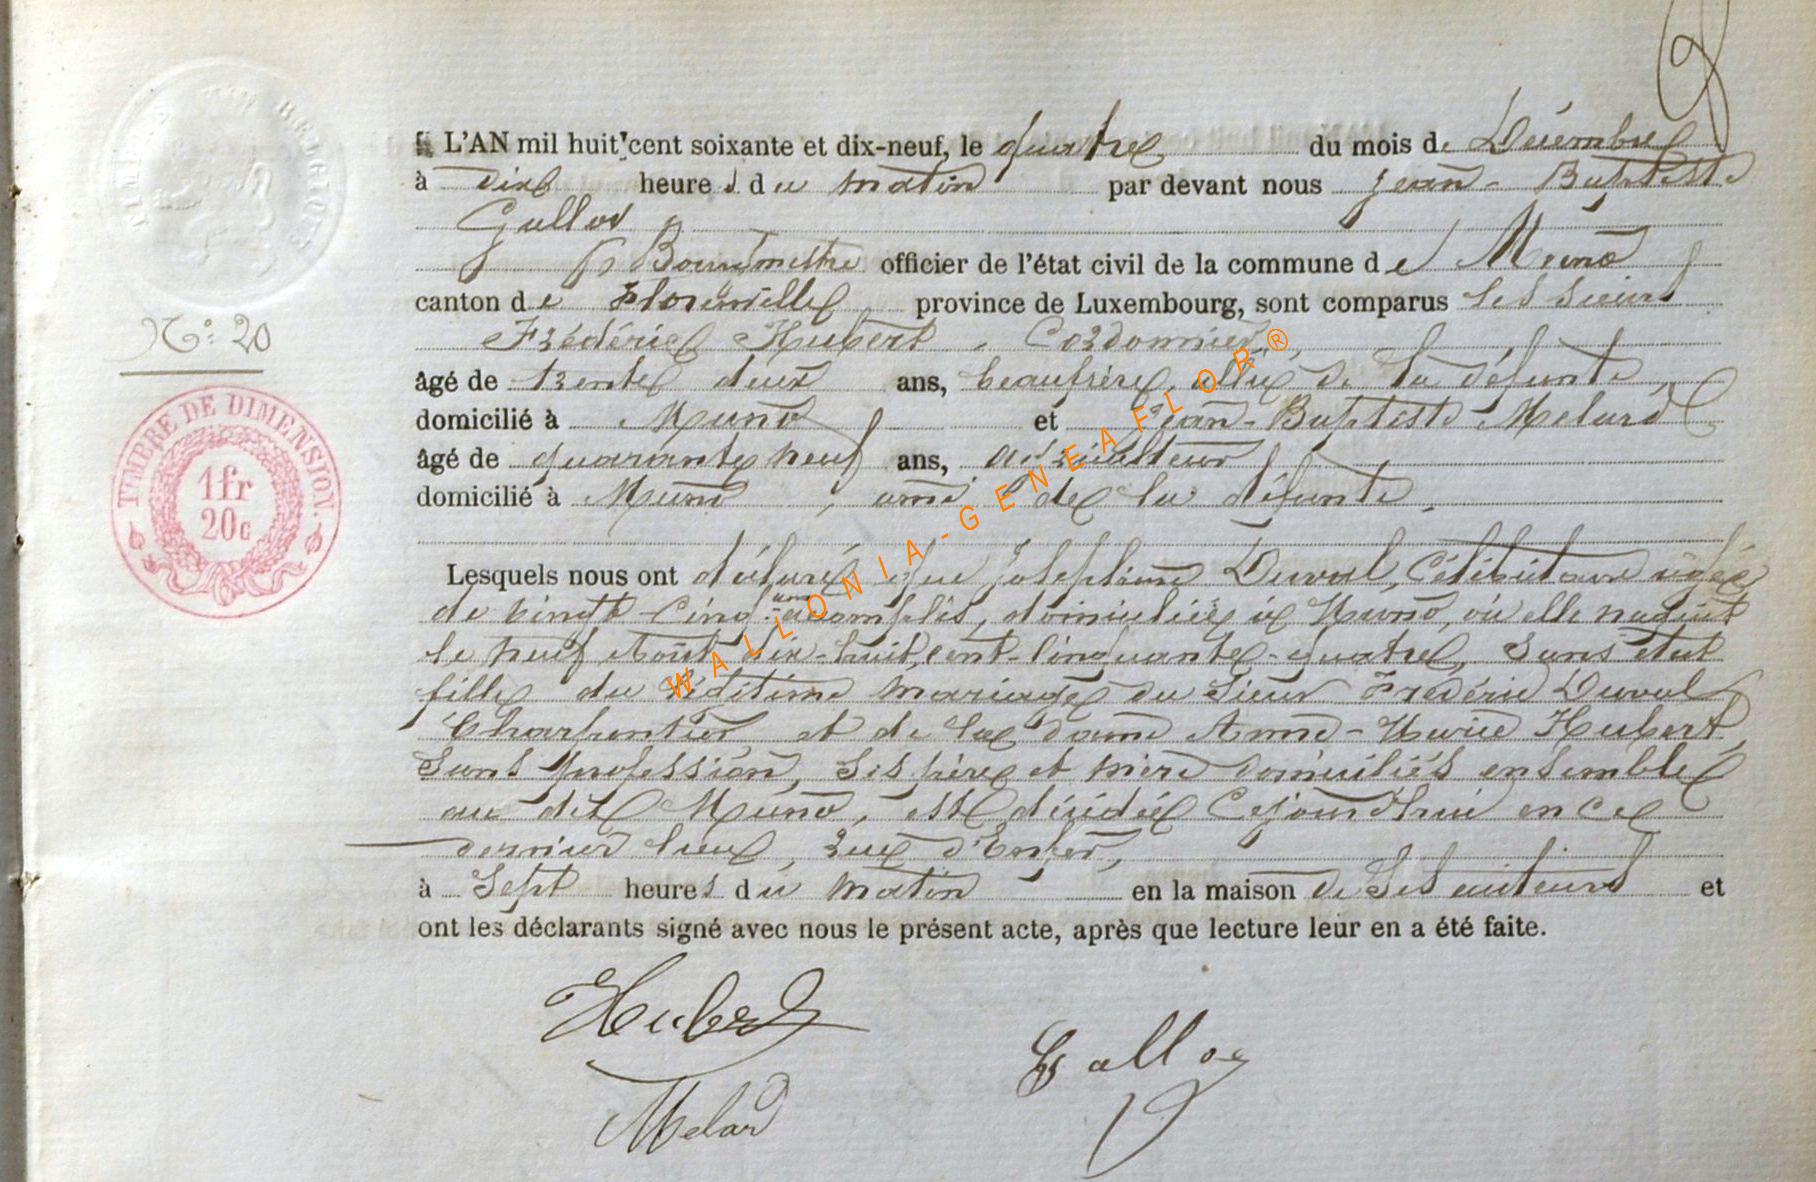 TIMBRE BELGIQUE
N.º 20
TIMBRE DE DIMENSION.
1 fr
20 c
L'AN mil huit cent soixante et dix-neuf, le quatre du mois de Décembre
à dix heures du matin par devant nous Jean-Baptiste
Galloy
Bourgmestre officier de l'état civil de la commune de Muno
canton de Florenville province de Luxembourg, sont comparus les sieurs
Frédéric Hubert, Cordonnier,
âgé de trente deux ans, beaufrère, allié de la défunte,
domicilié à Muno et Jean-Baptiste Melard
âgé de quarante neuf ans, agriculteur
domicilié à Muno, ami de la défunte.
Lesquels nous ont déclaré que Joséphine Duval, Célibataire âgée
de vingt-cinq ans accomplis, domiciliée à Muno, où elle naquit
le neuf Août dix-huit cent-cinquante-quatre, Sans état
fille du légitime mariage du Sieur Frédéric Duval
Charpentier, et de la dame Anne-Marie Hubert,
Sans profession, Ses père et mère domiciliés ensemble
au dit Muno, est décédée Cejourd'hui en ce
dernier lieu, rue d'Enfer,
à Sept heures du matin en la maison de Ses auteurs et
ont les déclarants signé avec nous le présent acte, après que lecture leur en a été faite.
Hubert
Galloy
Melard
WALLONIA-GENEAFLOR®